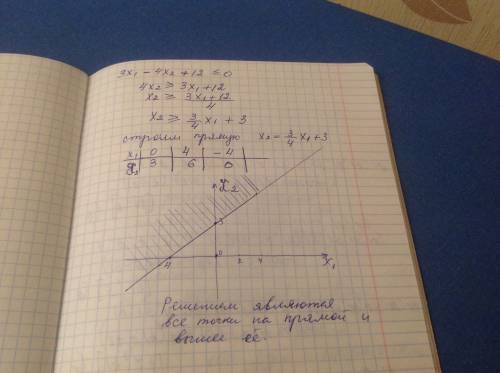 3x₁ - 4x₂ + 12 ≤ 0
4x₂ ≥ 3x₁ + 12
x₂ ≥ (3x₁ + 12)/4
x₂ ≥ 3/4 x₁ + 3
строим прямую x₂ = 3/4 x₁ + 3
x₁ | 0 | 4 | -4
x₂ | 3 | 6 | 0
x₂
3
-4 0 2 4 x₁
Решением являются
все точки на прямой и
выше её.